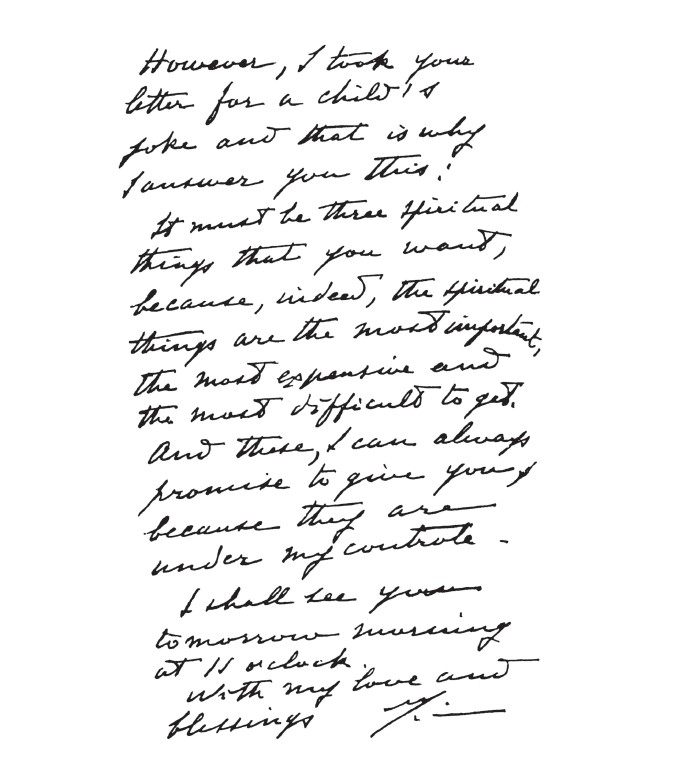 However, I took your
letter for a child's
joke and that is why
I answer you this:
It must be three spiritual
things that you want,
because, indeed, the spiritual
things are the most important,
the most expensive and
the most difficult to get.
And these, I can always
promise to give you,
because they are
under my controle -
I shall see you
tomorrow morning
at 11 o'clock.
With my love and
blessings